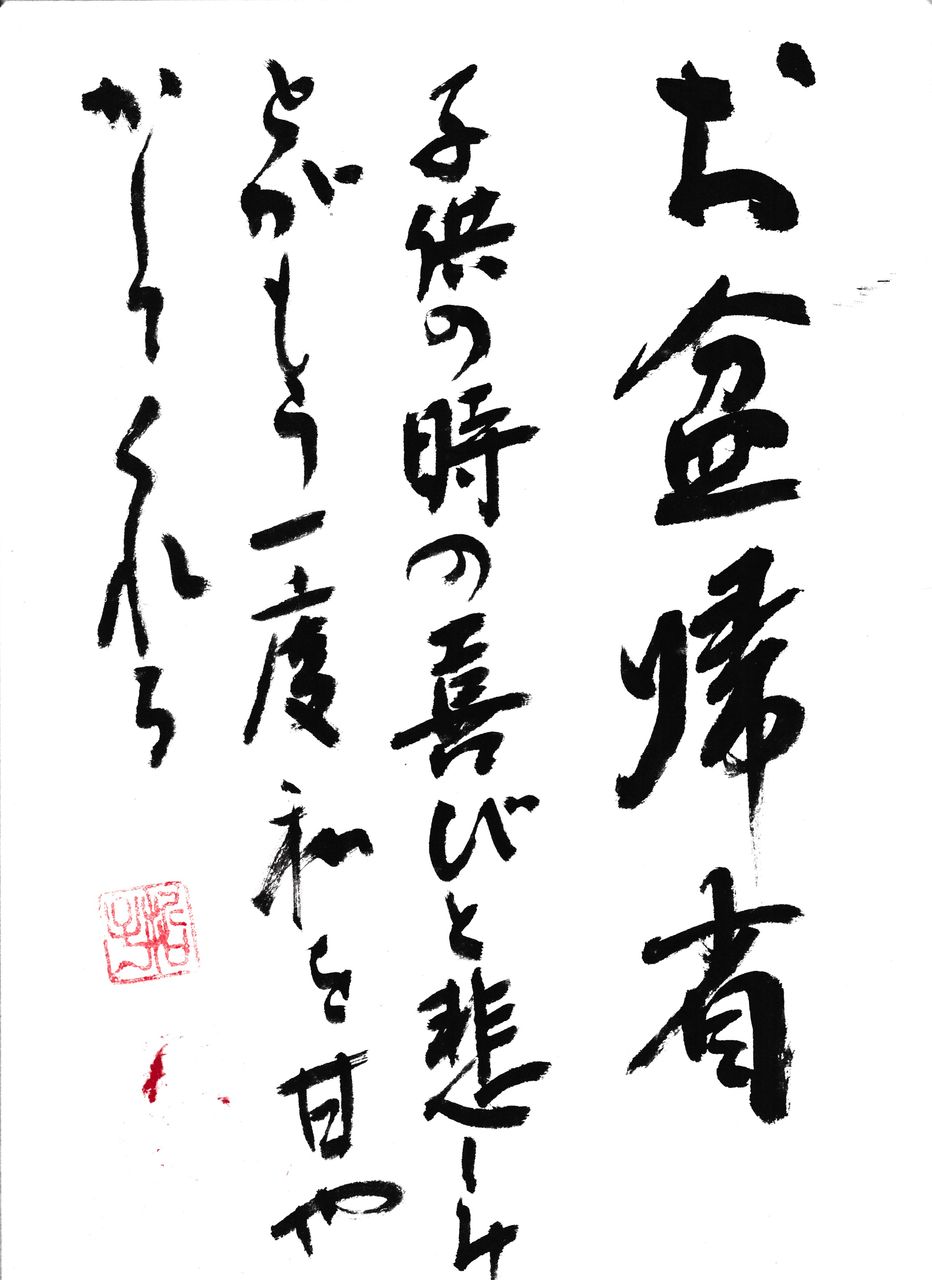 お盆帰省
子供の時の喜びと悲しみ
とがもう一度私を甘や
かしてくれる